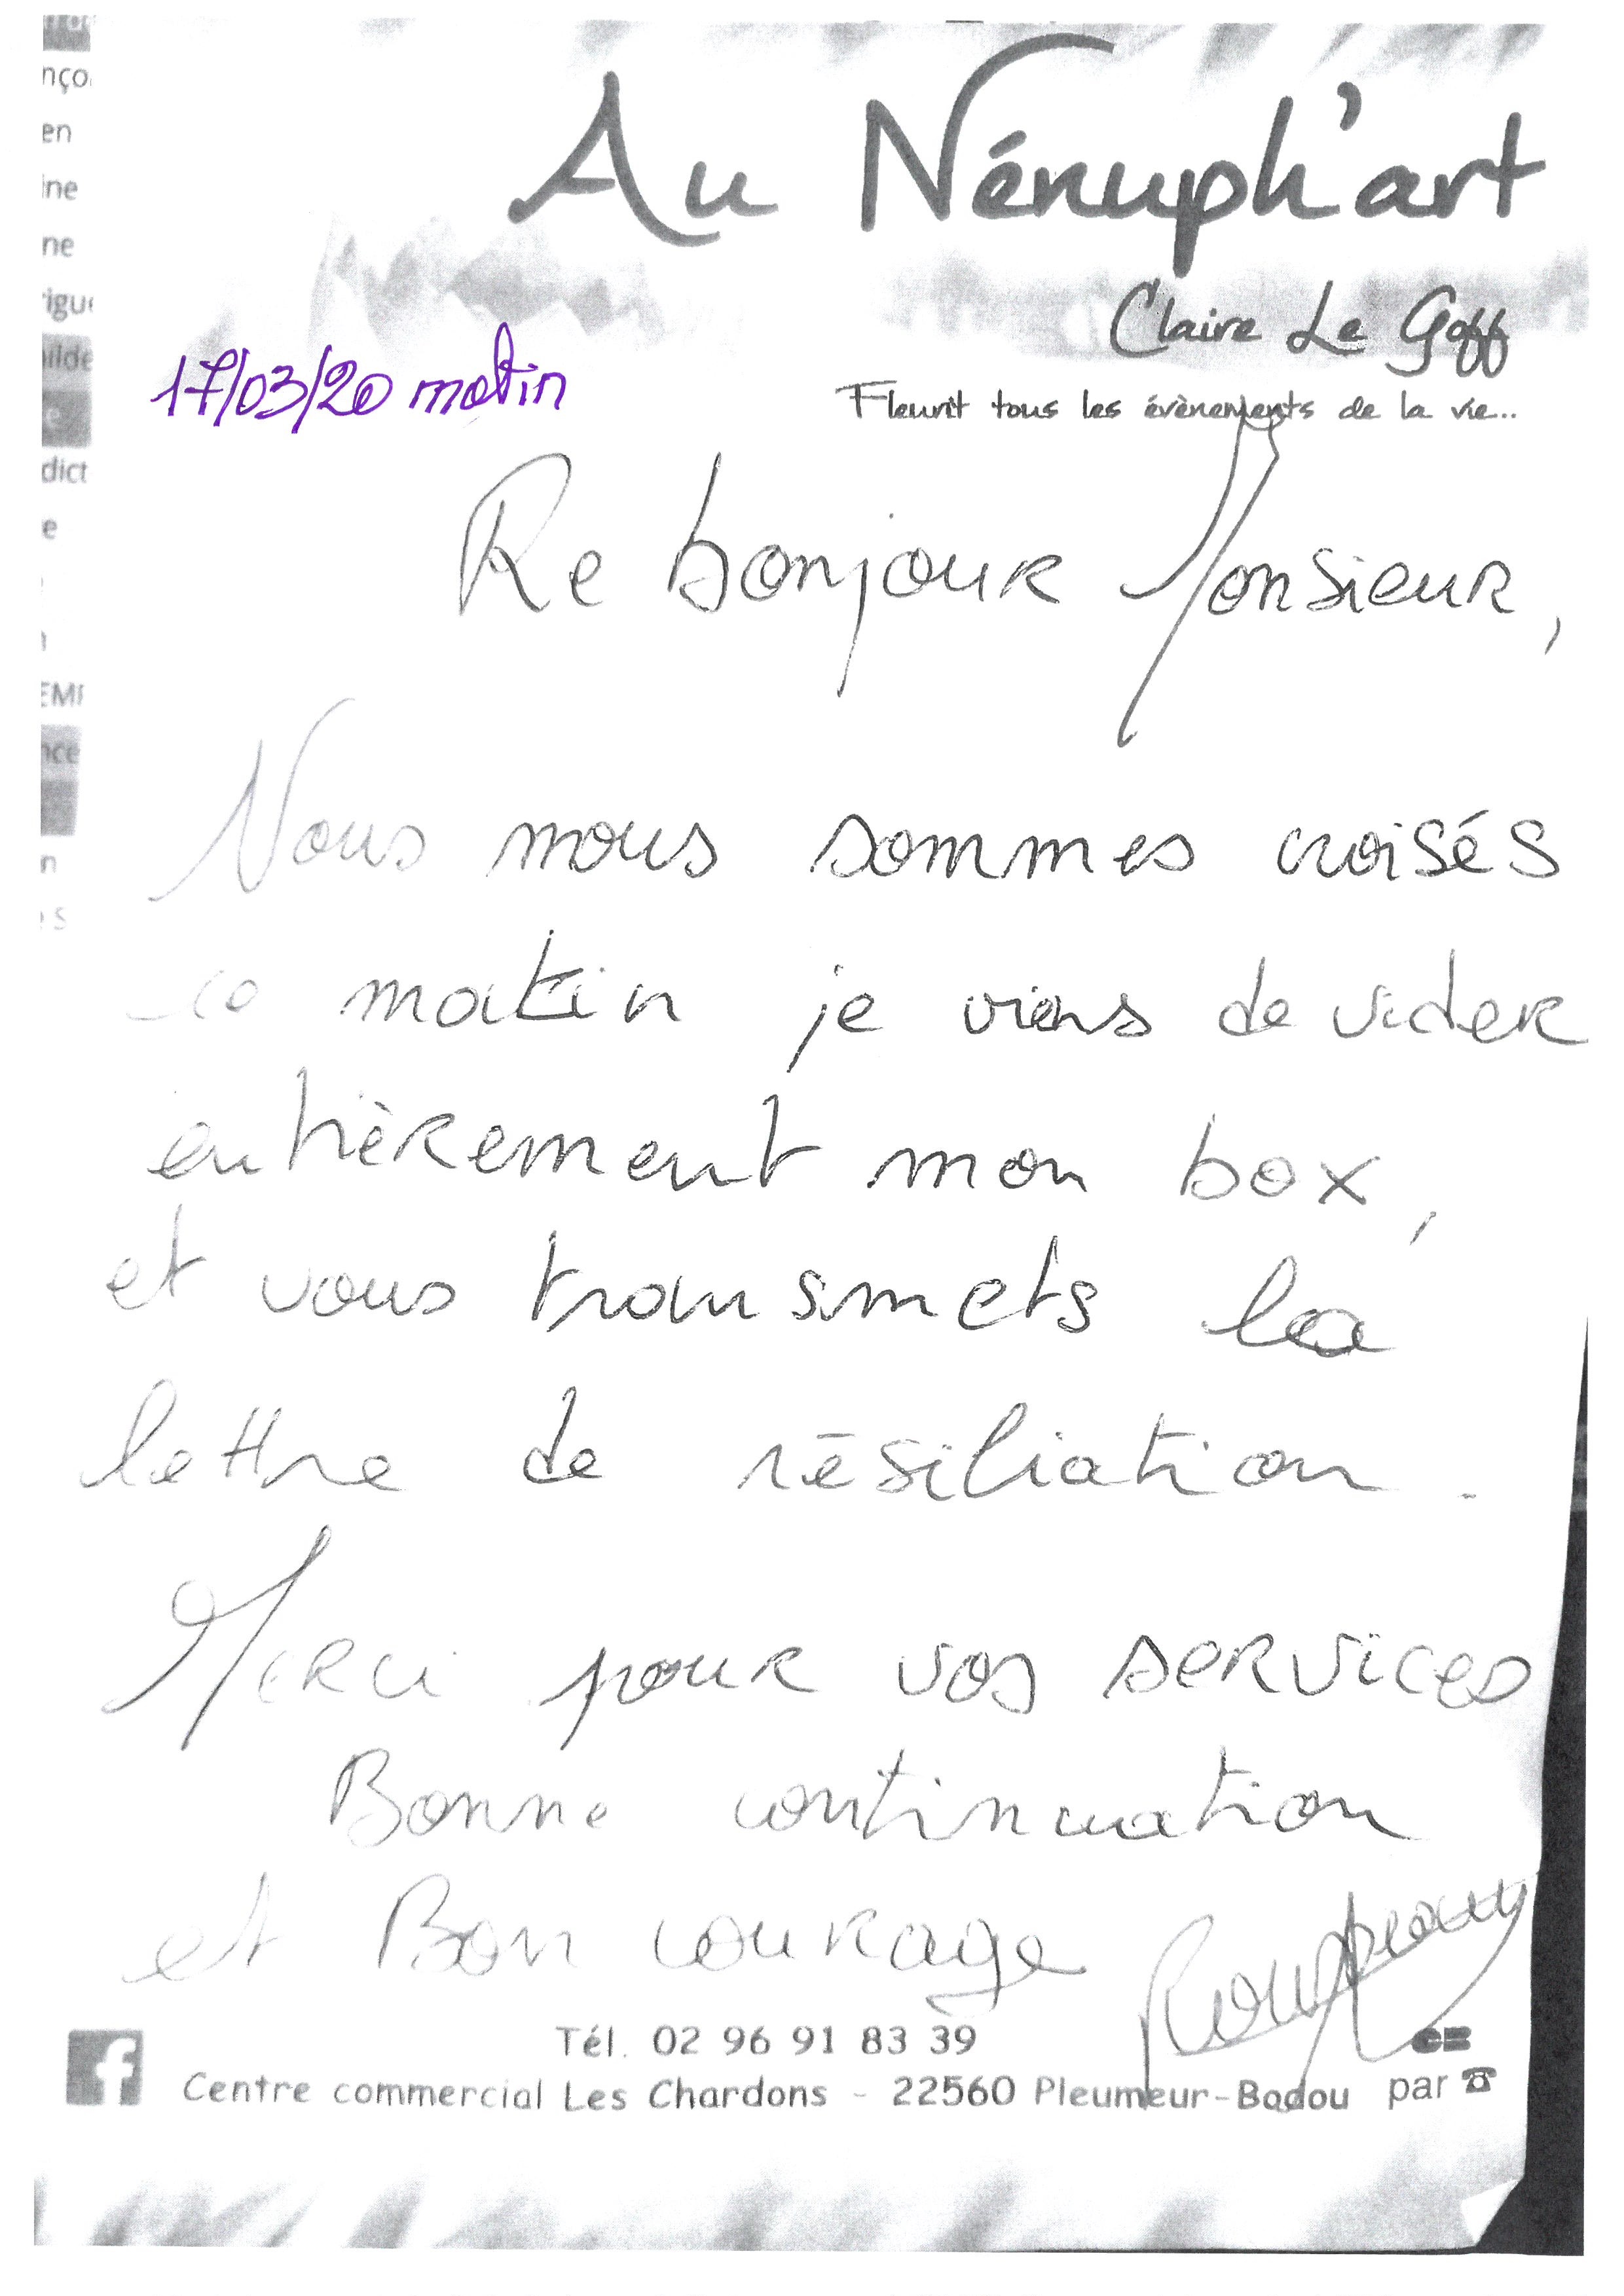 Au Nénuph'art
Claire Le Goff
Fleurit tous les évènements de la vie...
17/03/20 matin
Re bonjour Monsieur,
Nous nous sommes croisés
ce matin je viens de vider
entièrement mon box,
et vous transmets la
lettre de résiliation.
Merci pour vos services
Bonne continuation
et Bon courage
Tél. 02 96 91 83 39
Centre commercial Les Chardons - 22560 Pleumeur-Bodou par ☎